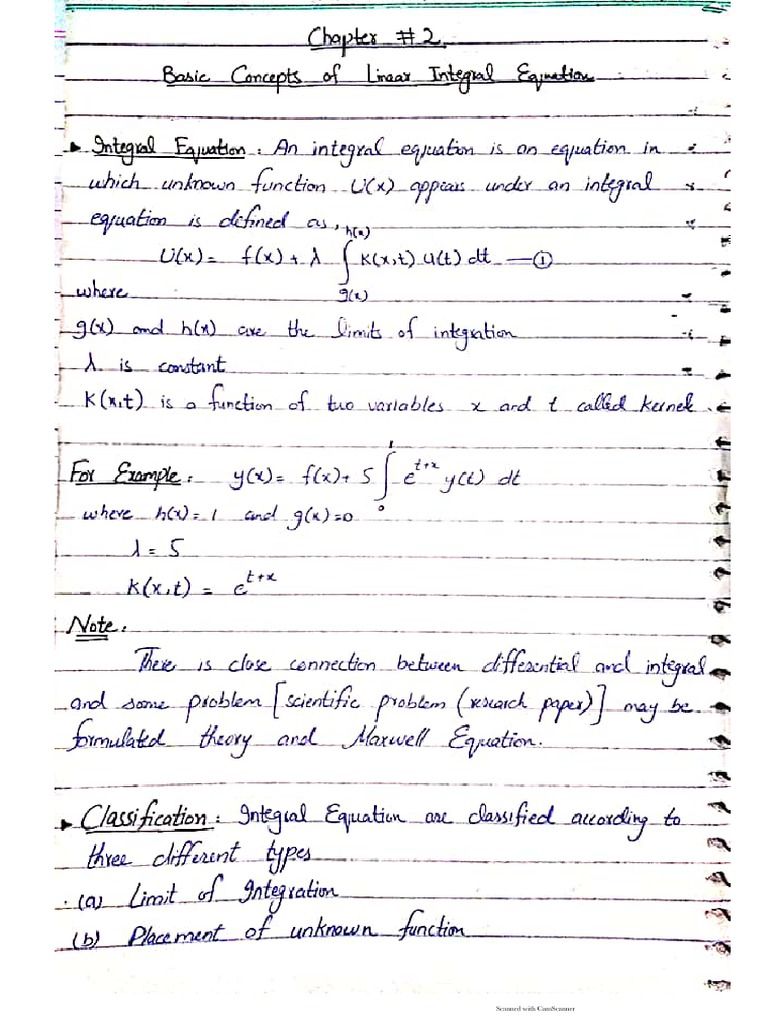 Chapter #2.
Basic Concepts of Linear Integral Equation
▸ Integral Equation: An integral equation is an equation in
which unknown function U(x) appears under an integral
equation is defined as,
U(x) = f(x) + λ ∫_{g(x)}^{h(x)} K(x,t) u(t) dt — ①
where
g(x) and h(x) are the limits of integration
λ is constant
K(x,t) is a function of two variables x and t called kernel.
For Example: y(x) = f(x) + 5 ∫_0^1 e^{t+x} y(t) dt
where h(x) = 1 and g(x) = 0
λ = 5
K(x,t) = e^{t+x}
Note:
There is close connection between differential and integral
and some problem [scientific problem (research paper)] may be
formulated theory and Maxwell Equation.
▸ Classification: Integral Equation are classified according to
three different types
(a) Limit of Integration
(b) Placement of unknown function
Scanned with CamScanner